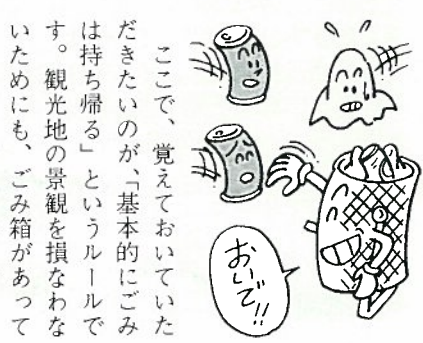 ここで、覚えておいていた
だきたいのが、「基本的にごみ
は持ち帰る」というルールで
す。観光地の景観を損なわな
いためにも、ごみ箱があって
おいで!!